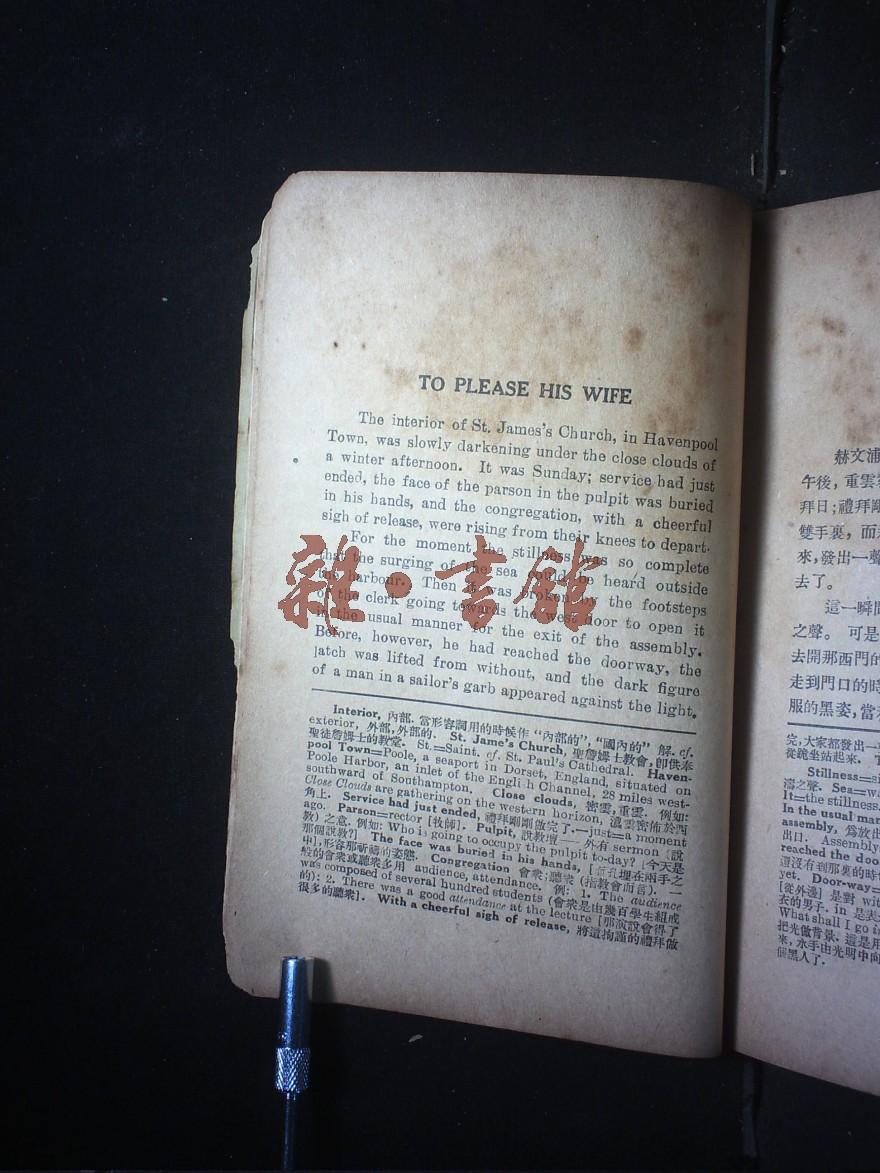 TO PLEASE HIS WIFE
The interior of St. James's Church, in Havenpool
Town, was slowly darkening under the close clouds of
a winter afternoon. It was Sunday; service had just
ended, the face of the parson in the pulpit was buried
in his hands, and the congregation, with a cheerful
sigh of release, were rising from their knees to depart.
For the moment the stillness was so complete
that the surging of the sea could be heard outside
the harbour. Then it was broken by the footsteps
of the clerk going towards the west door to open it
in the usual manner for the exit of the assembly.
Before, however, he had reached the doorway, the
latch was lifted from without, and the dark figure
of a man in a sailor's garb appeared against the light.
Interior, 內部. 當形容詞用的時候作 “內部的”, “國內的” 解. cf.
exterior, 外部, 外部的. St. Jame's Church, 聖詹姆士教會, 卽供奉
聖徒詹姆士的教堂. St.=Saint. cf. St. Paul's Cathedral. Haven-
pool Town=Poole, a seaport in Dorset, England, situated on
Poole Harbor, an inlet of the Engli h Channel, 28 miles west-
southward of Southampton. Close clouds, 密雲, 重雲. 例如:
Close Clouds are gathering on the western horizon, 濃雲密佈於西
角上. Service had just ended, 禮拜剛剛做完了.—just=a moment
ago. Parson=rector [牧師]. Pulpit, 說教壇——外有 sermon (說
教) 之意. 例如: Who is going to occupy the pulpit to-day? [今天是
那個說教?] The face was buried in his hands, [面孔埋在兩手之
中], 形容那祈禱的姿態. Congregation 會衆; 聽衆 (指教會而言). 一
般的會衆或聽衆多用 audience, attendance. 例: 1. The audience
was composed of several hundred students (會衆是由幾百學生組成
的): 2. There was a good attendance at the lecture [那演說會得了
很多的聽衆]. With a cheerful sigh of release, 將這拘謹的禮拜做
赫文浦
午後, 重雲
拜日; 禮拜剛
雙手裏, 而
來, 發出一聲
去了.
這一瞬間
之聲. 可是
去開那西門的
走到門口的時
服的黑姿, 當
完, 大家都發出一
從跪坐站起來.
Stillness=
濤之聲. Sea=wa
It=the stillness.
In the usual mann
assembly, 爲放出
出口. Assembly
reached the door
還沒有到那裏的時
yet. Door-way=
[從外邊] 是對 wit
衣的男子. in 是表
What shall I go in
把光做背景. 這是用
來, 水手由光明中向
個黑人了.
雜·書館